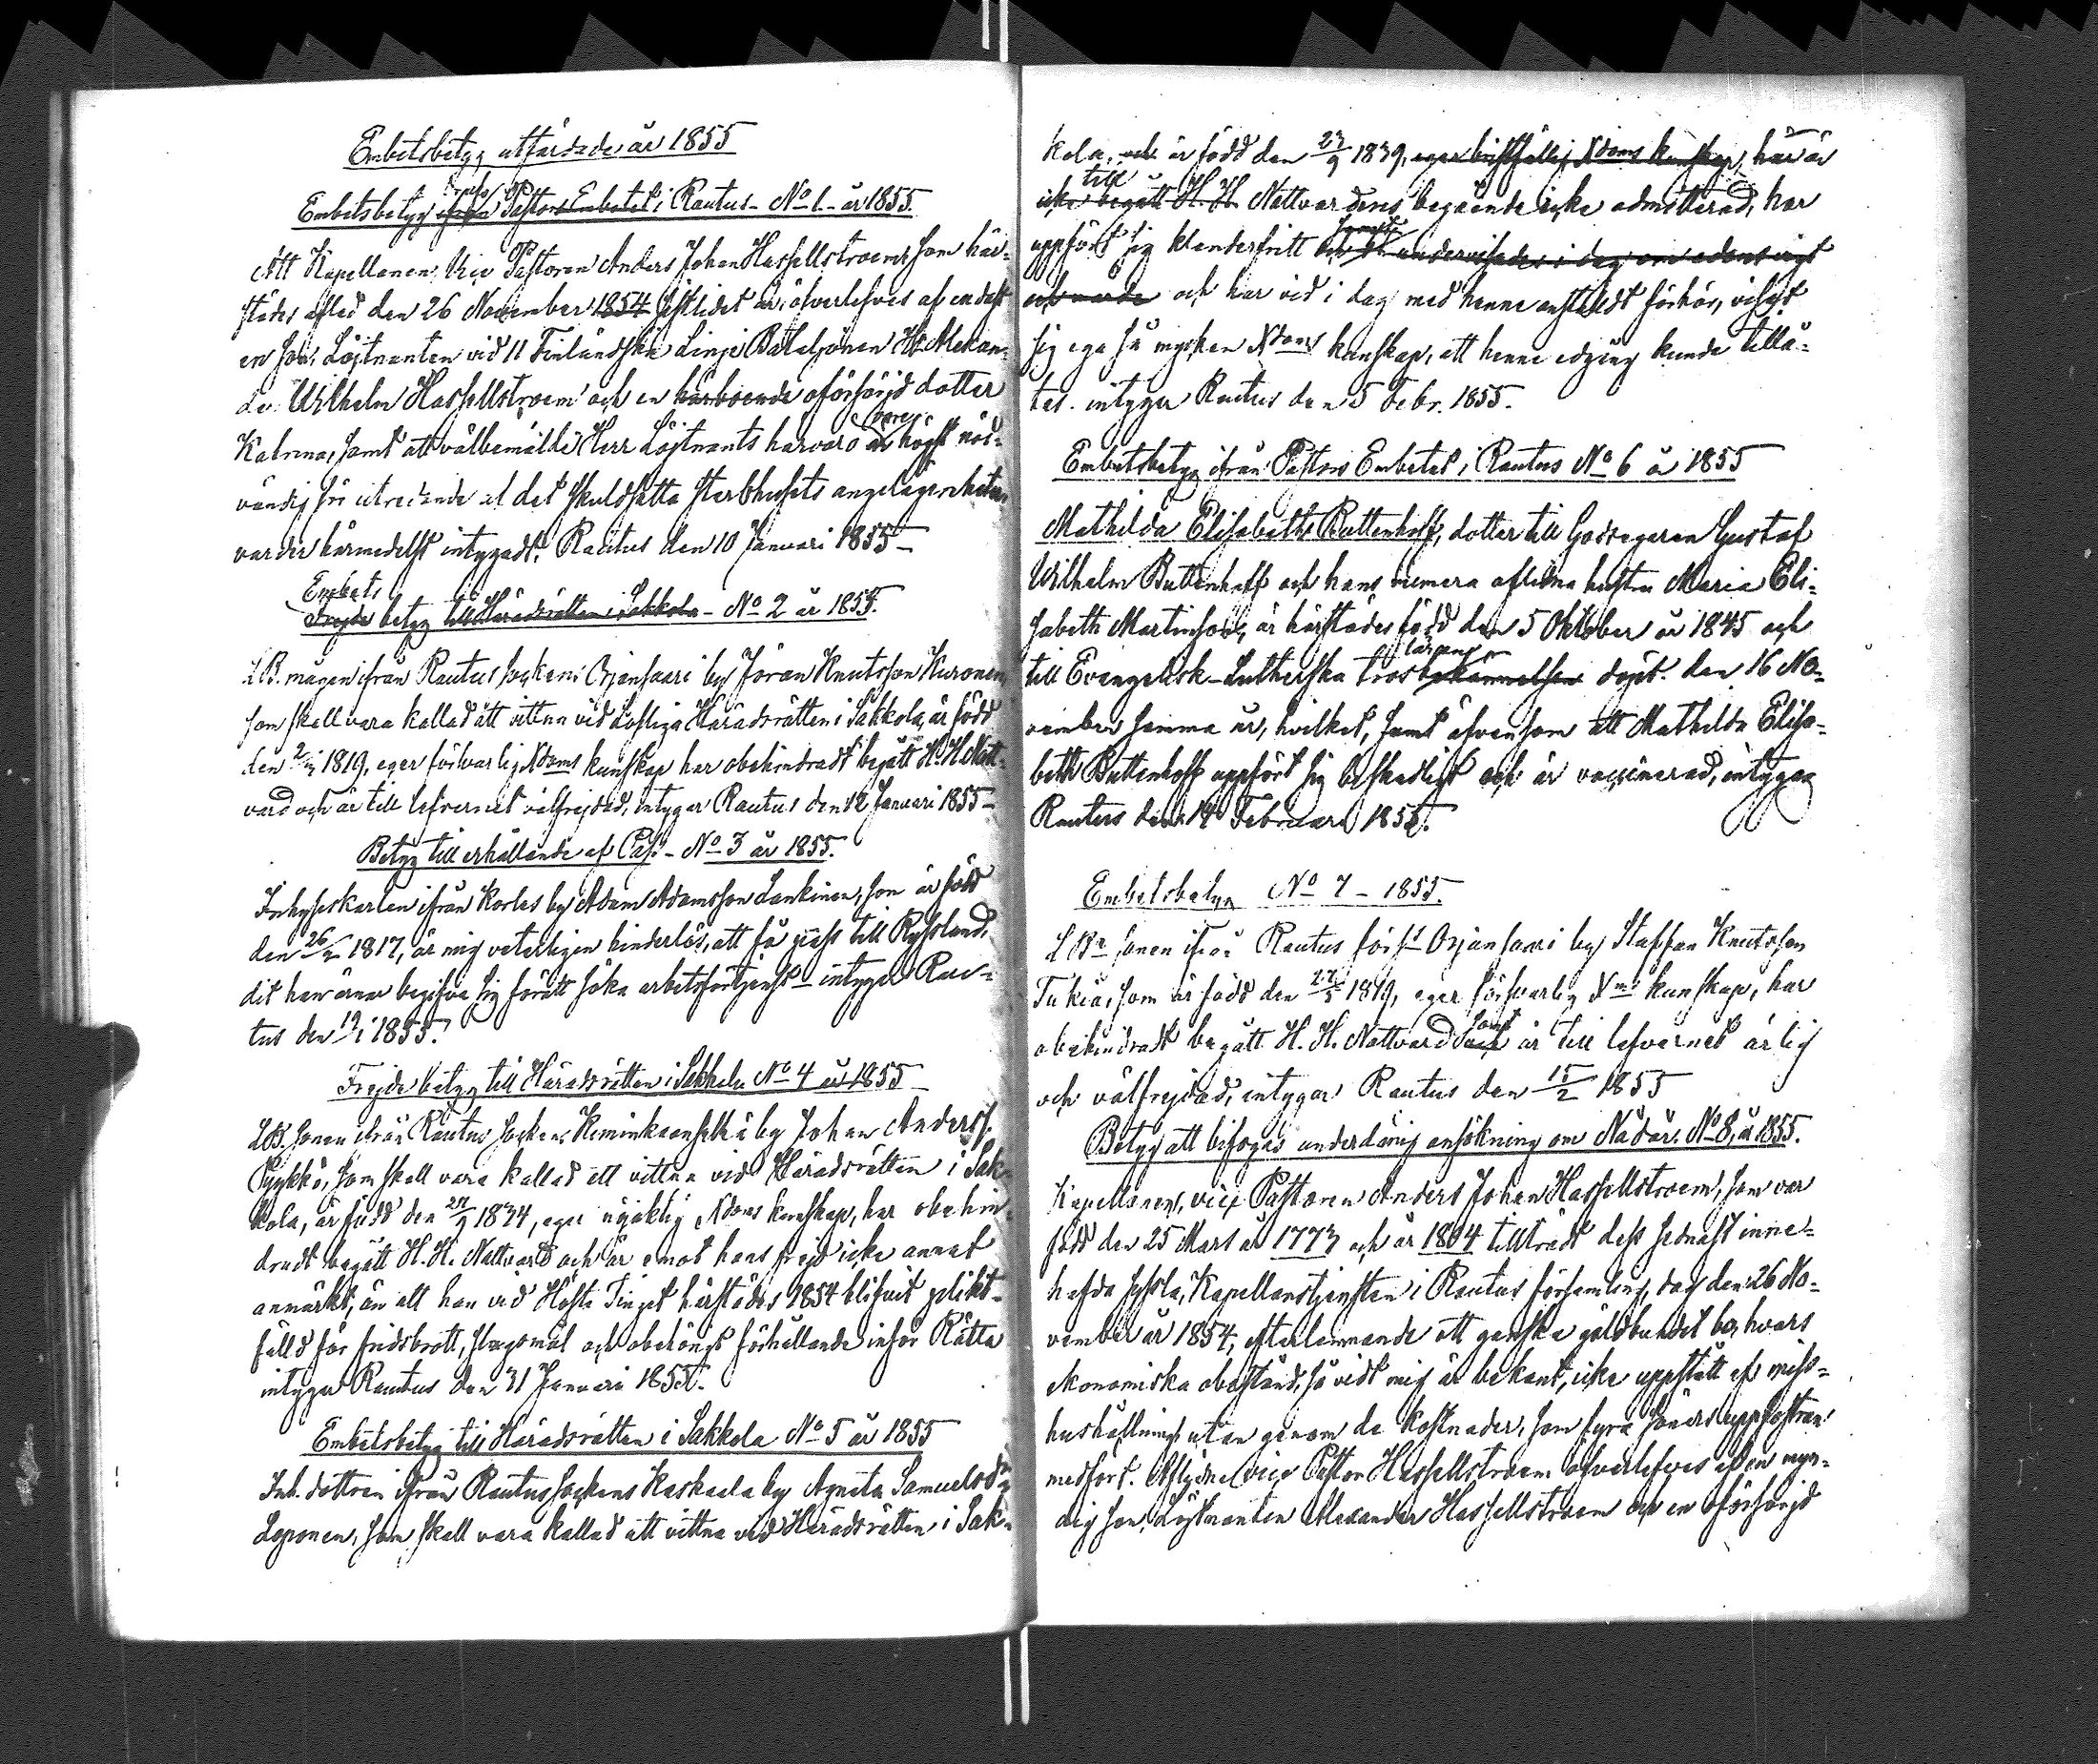 Embetsbetyg utfärdade år 1855
Embetsbetyg ifrån Pastors Embetet i Rautus No 1 år 1855.
Att Kapellanen, Vice Pastoren Anders Johan Hassellstroem, som här-
städes afled den 26 November 1854 sistlidet år, öfverlefves af endast
en son, Löjtnanten vid 11 Finländska Linje Bataljonen Hr Alexan-
der Wilhelm Hassellstroem och en härboende oförsörjd dotter
Katrina, samt att välbemälde Herr Löjtnants harvaro är högst nöd-
vändig för utredande af det skuldsatta sterbhusets angelägenheter,
varder härmedelst intygadt. Rautus den 10 Januari 1855 -
Embets
Frejde betyg till Häradsrätten i Sakkola - No 2 år 1855.
LB. mågen ifrån Rautus socken Orjansaari by Jöran Knutsson Kuronen,
som skall vara kallad att vittna vid Lofliga Häradsrätten i Sakkola, är född
den 1819, eger försvarlig Xdoms kunskap har obehindradt begått H. H. Natt-
vard och är till lefvernet välfrejdad, intygar Rautus den 12 Januari 1855 -
Betyg till erhållande af Pass - No 3 år 1855.
Inhyseskarlen ifrån Korles by Adam Adamsson Lankinen, som är född
den 26/2 1817, är mig veterligen hinderlös, att få pass till Ryssland,
dit han ärnar begifva sig för att söka arbetsförtjenst - intygar Rau-
tus den 19/1 1855.
Frejde betyg till Häradsrätten i Sakkola No 4 år 1855 -
LB. sonen ifrån Rautus socken Keminkaanselkä by Johan Anderss.
Pykkö, som skall vara kallad att vittna vid Häradsrätten i Sak-
kola, är född den 27/9 1834, eger nöjaktig Xdoms kunskap, har obehin-
dradt begått H. H. Nattvard och är emot hans frejd icke annat
anmärkt, än att han vid Höste Tinget härstädes 1854 blifvit plikt-
fälld för fridsbrott, slagsmål och obehörigt förhållande inför Rätta
intygar Rautus den 31 Januari 1855.
Embetsbetyg till Häradsrätten i Sakkola No 5 år 1855
Inh. dottren ifrån Rautus sockens Kaskaala by Agneta Samuelsdr
Loponen, som skall vara kallad att vittna vid Häradsrätten i Sak-
kola, och är född den 23/9 1839, eger bristfällig Xdoms kunskap, har är
till
icke begått H. H. Nattvardens begående icke admitterad, har
uppfört sig klanderfritt samt undervisades i dag om edens vigt
och värde och har vid i dag med henne anstäldt förhör, visat
sig ega så mycken Xdoms kunskap, att henne edgång kunde tillå-
tas. intygar Rautus den 5 Febr. 1855.
Embetsbetyg ifrån Pastors Embetet i Rautus No 6 år 1855
Mathilda Elisabeth Buttenhoff, dotter till Godsegaren Gustaf
Wilhelm Buttenhoff och hans numera aflidna hustru Maria Eli-
sabeth Martinson, är härstädes född den 5 Oktober år 1845 och
läran
till Evangelisk-Lutherska trosbekännelsen döpt den 16 No-
vember samma år, hvilket, samt äfvensom att Mathilda Elisa-
beth Buttenhoff uppfört sig beskedligt och är vaccinerad, intygar
Rautus den 14 Februari 1855.
Embetsbetyg No 7 - 1855.
LBr sonen ifrån Rautus förs:s Orjansaari by Staffan Knutsson
Tukia, som är född den 27/5 1819, eger försvarlig Xms kunskap, har
samt
obehindradt begått H. H. Nattvard och är till lefvernet ärlig
och välfrejdad, intygar Rautus den 15/2 1855
Betyg att bifogas underdånig ansökning om Nådår. No 8, år 1855.
Kapellanen, vice Pastoren Anders Johan Hassellstroem, som var
född den 25 Mars år 1773 och år 1804 tillträdt dess sednast inne-
hafda syssla, Kapellanstjensten i Rautus församling, dog den 26 No-
vember år 1854, efterlemnande ett ganska gäldbundet bo, hvars
ekonomiska obestånd, så vidt mig är bekant, icke uppstått af miss-
hushållning utan genom de kostnader, som fyra söners uppfostran
medfört. Aflidne vice Pastor Hassellstroem öfverlefves af en myn-
dig son, Löjtnanten Alexander Hassellstroem och en oförsörjd